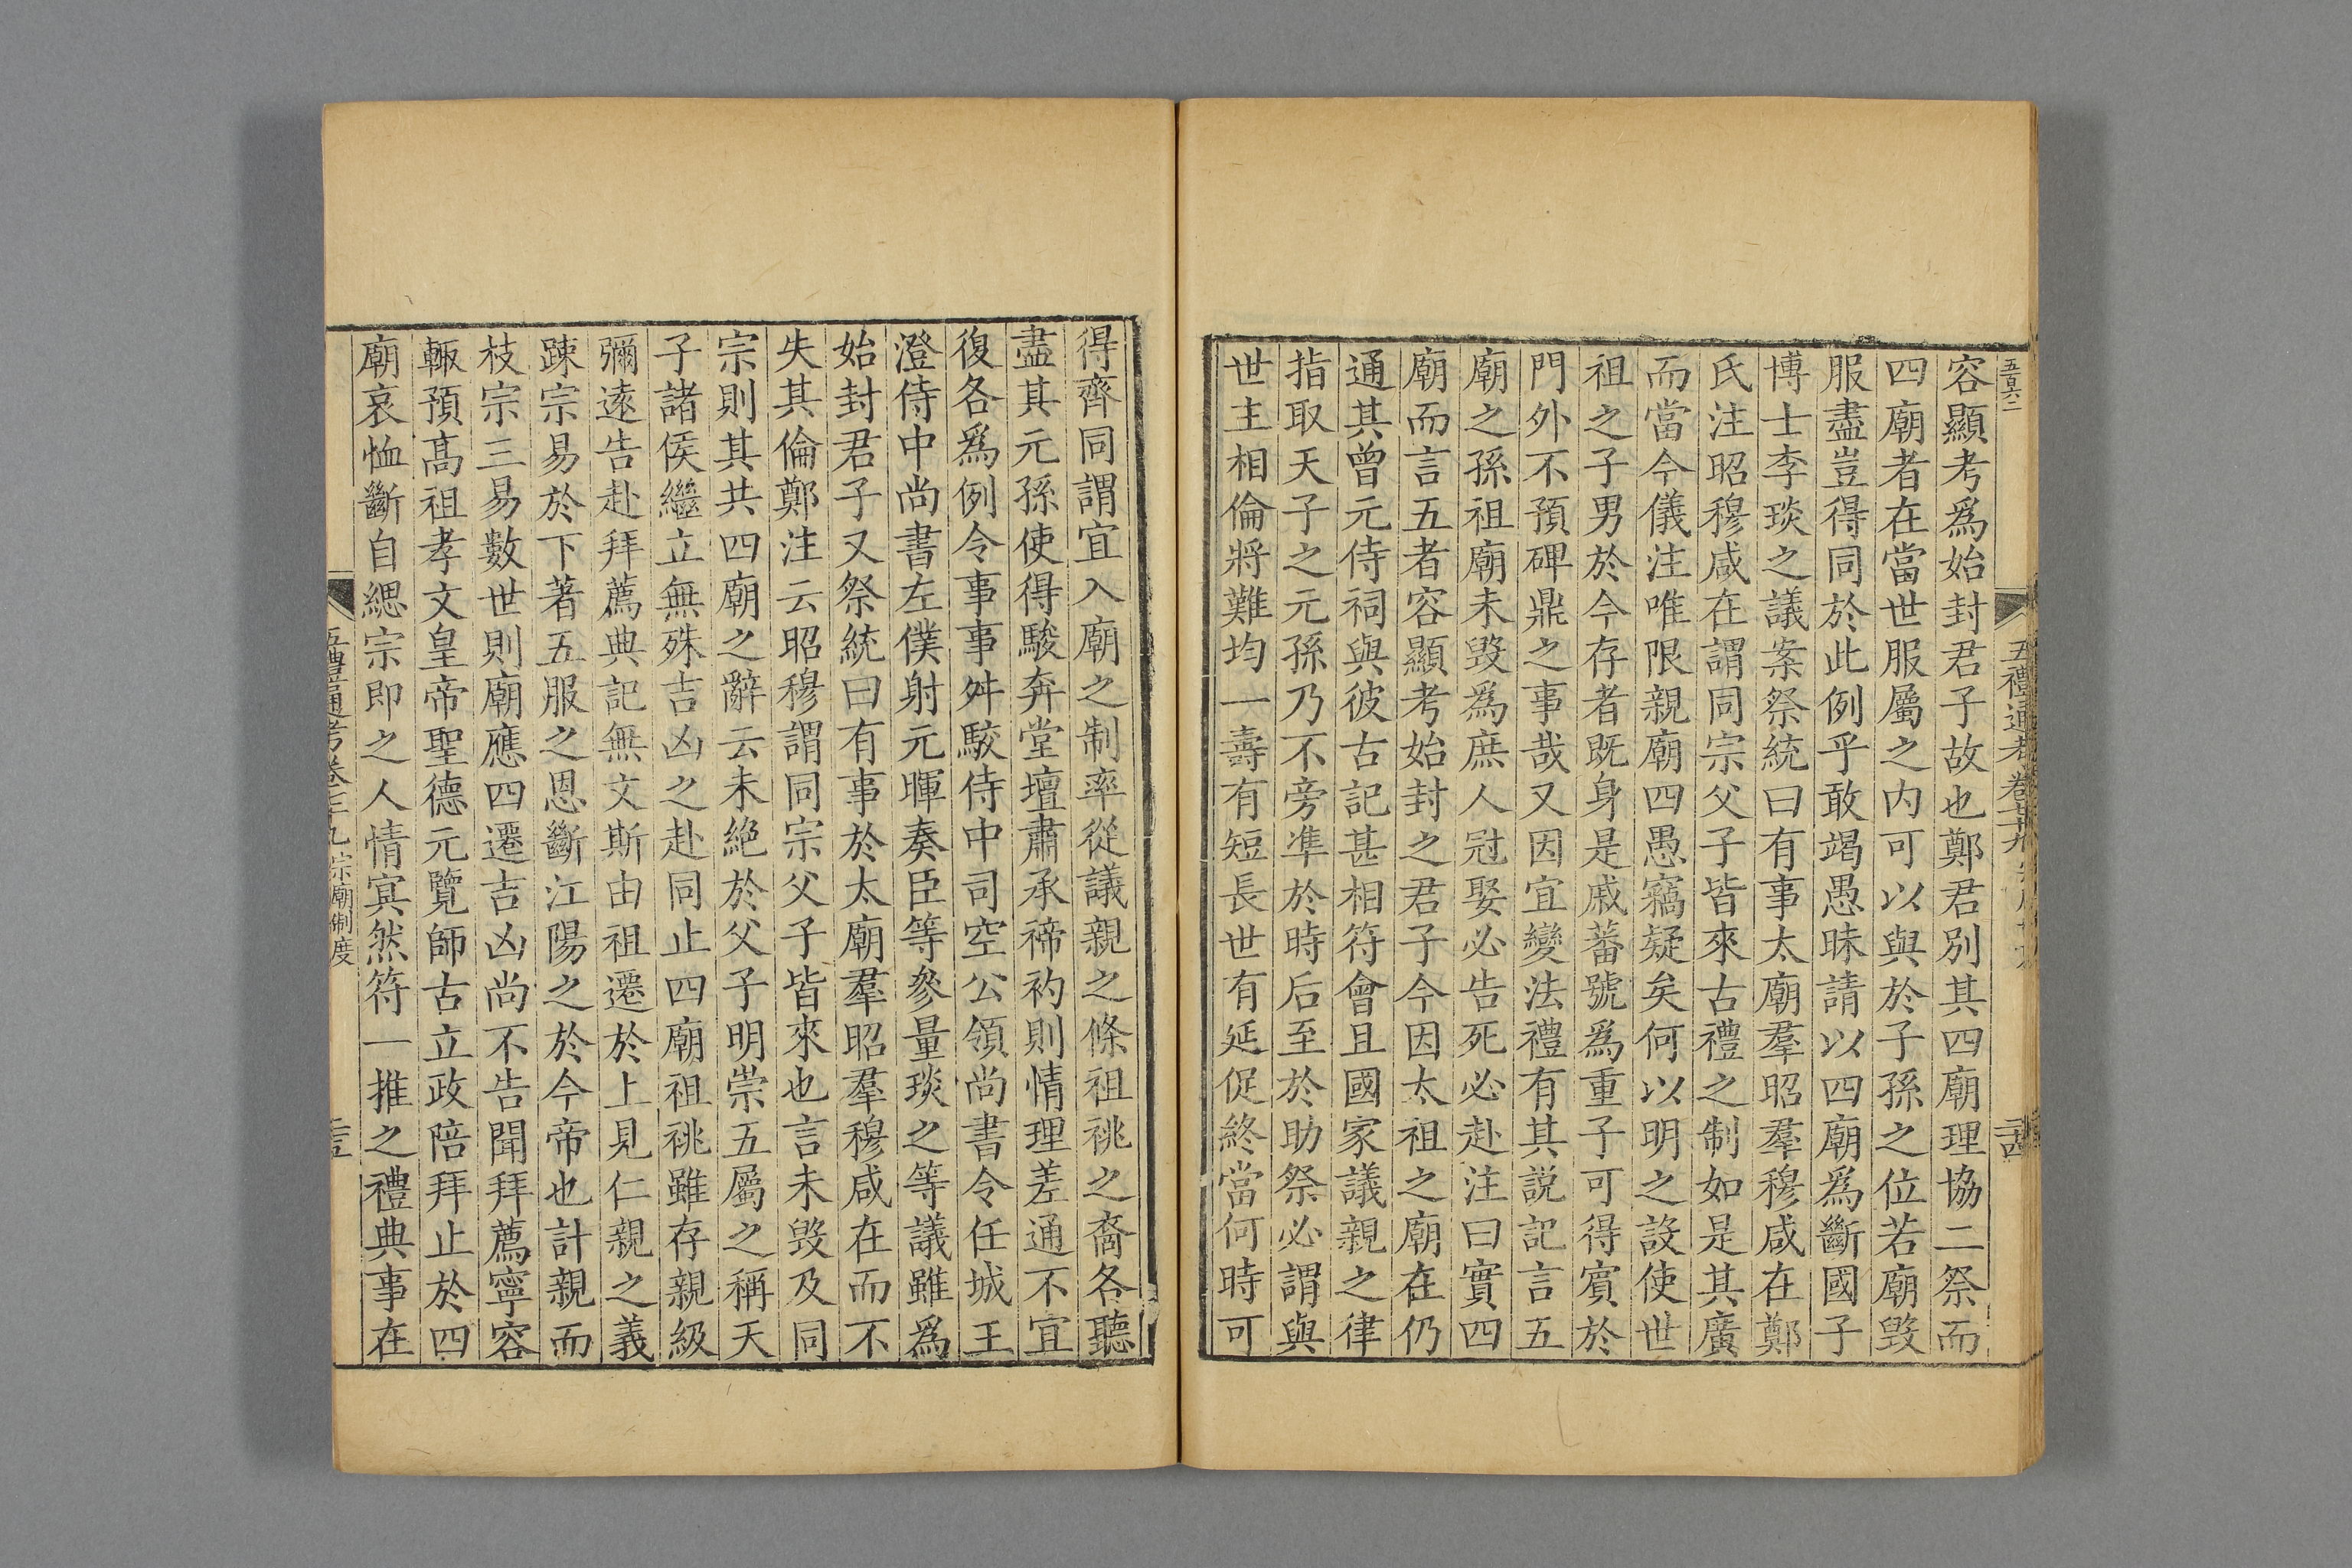 容顯考爲始封君子故也鄭君別其四廟理協二祭而
四廟者在當世服屬之内可以與於子孫之位若廟毀
服盡豈得同於此例乎敢竭愚昧請以四廟爲斷國子
博士李琰之議案祭統曰有事太廟羣昭羣穆咸在鄭
氏注昭穆咸在謂同宗父子皆來古禮之制如是其廣
而當今儀注唯限親廟四愚竊疑矣何以明之設使世
祖之子男於今存者既身是戚蕃號爲重子可得賓於
門外不預碑鼎之事哉又因宜變法禮有其説記言五
廟之孫祖廟未毀爲庶人冠娶必告死必赴注曰實四
廟而言五者容顯考始封之君子今因太祖之廟在仍
通其曾元侍祠與彼古記甚相符會且國家議親之律
指取天子之元孫乃不旁準於時后至於助祭必謂與
世主相倫將難均一壽有短長世有延促終當何時可
得齊同謂宜入廟之制率從議親之條祖祧之裔各聽
盡其元孫使得駿奔堂壇肅承禘礿則情理差通不宜
復各爲例令事事舛駮侍中司空公領尚書令任城王
澄侍中尚書左僕射元暉奏臣等參量琰之等議雖爲
始封君子又祭統曰有事於太廟羣昭羣穆咸在而不
失其倫鄭注云昭穆謂同宗父子皆來也言未毀及同
宗則其共四廟之辭云未絶於父子明崇五屬之稱天
子諸侯繼立無殊吉凶之赴同止四廟祖祧雖存親級
彌遠告赴拜薦典記無文斯由祖遷於上見仁親之義
踈宗易於下著五服之恩斷江陽之於今帝也計親而
枝宗三易數世則廟應四遷吉凶尚不告聞拜薦寧容
輙預髙祖孝文皇帝聖德元覽師古立政陪拜止於四
廟哀恤斷自緦宗即之人情冥然符一推之禮典事在
五禮通考卷五十九 宗廟制度
二十五